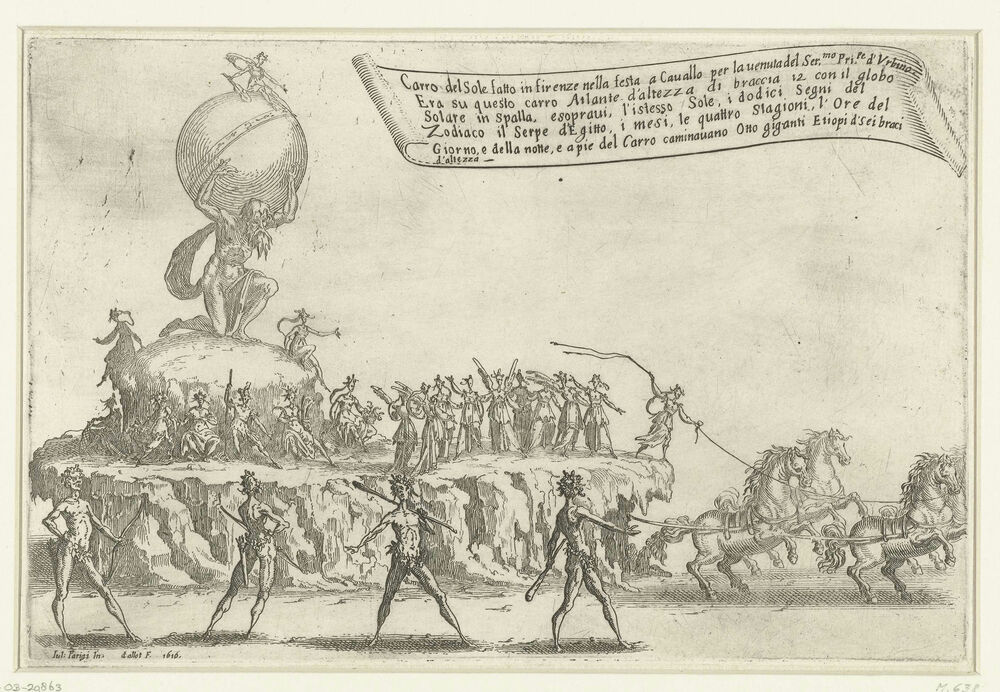 Carro del Sole fatto in firenze nella festa a Cauallo per la uenuta del Ser.mo Pri.pe d'Vrbino.
Era su questo carro Atlante d'altezza di braccia 12 con il globo
Solare in spalla, esopraui, l'istesso Sole, i dodici Segni del
Zodiaco il Serpe d'Egitto, i mesi, le quattro Stagioni, l'Ore del
Giorno, e della notte, e a pie del Carro caminauano Otto giganti Etiopi d'sei braci
d'altezza —
Iul: Parigi In. Callot F. 1616.
03-20863
M. 638